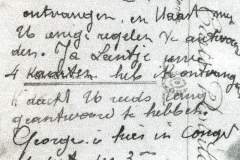 ontvangen, en haast mij
U enige regelen te antwoor
den. Ja Lentje uwe
4 kaarten heb ik ontvangen
k dacht U reeds lang
geantwoord te hebben
Georges is hier in Congo